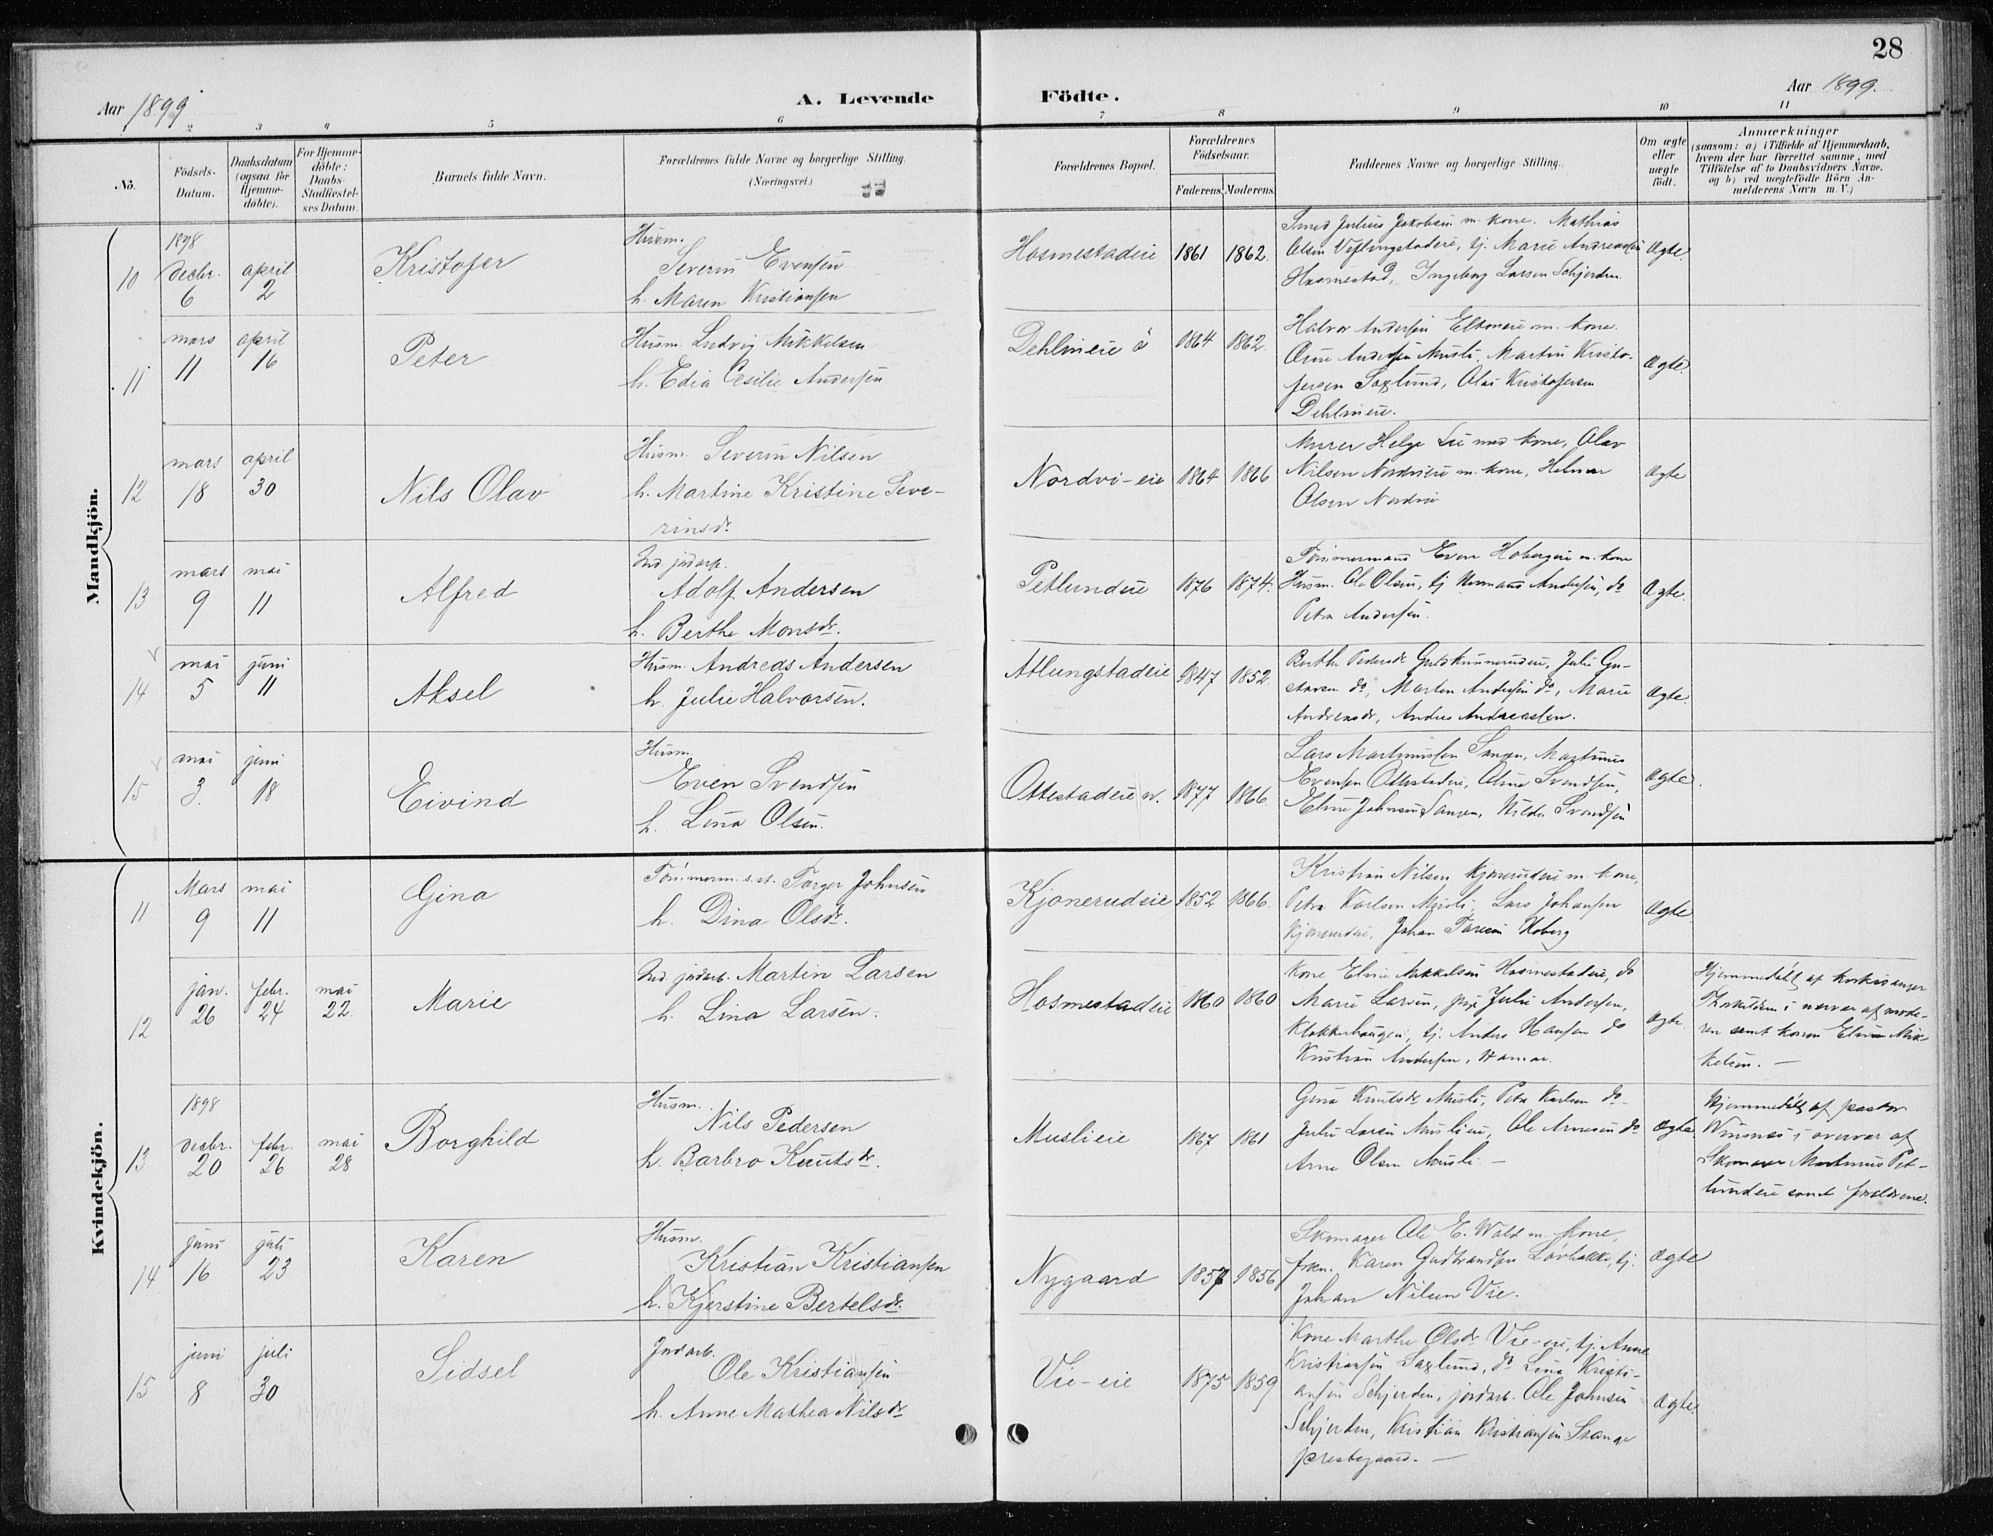 28
Aar 1899
A. Levende
Födte.
Aar 1899.
2 3 4 5 6 7 8 9 10 11
No.
Födsels-
Datum.
Daabsdatum
(ogsaa för
Hjemme-
döbte).
For Hjemme-
döbte:
Daabs-
Stadfæstel-
ses Datum.
Barnets fulde Navn.
Forældrenes fulde Navne og borgerlige Stilling.
(Næringsvei.)
Forældrenes Bopæl.
Forældrenes
Födselsaar.
Faderens. Moderens.
Faddernes Navne og borgerlige Stilling.
Om ægte
eller
uægte
födt.
Anmærkninger
(saasom: a) i Tilfælde af Hjemmedaab,
hvem der har forrettet samme, med
Tilföielse af to Daabsvidners Navne.
og b) ved uægtefödte Börn An-
melderens Navn m. V.)
Mandkjön.
10
1898
decbr.
6
april
2
Kristofer
Husm.
Severin Evensen
h. Maren Kristiansen
Hosmestadeie
1861
1862.
Smed Julius Jakobsen m. kone. Mathias
Olsen tj. Marie Andreassen
Hosmestad, Ingeborg Larsen Schjerden
ægte
11
mars
11
april
16
Peter
Husm. Ludvig Mikkelsen
h. Edia Cesilie Andersen
Dehlineie ö
1864
1862.
Halvor Andersen m. kone.
Andersen Musli, Martin Kristo-
fersen Saxlund, Olai Kristofersen
Dehlineie.
ægte.
12
mars
18
april
30
Nils Olav
Husm. Severin Nilsen
h. Martine Kristine Seve-
rinsdr.
Nordvi-eie
1864
1866
Murer Helge Lie med kone, Olav
Nilsen Nordvieie m. kone, Helmer
Olsen Nordvi
ægte
13
mars
9
mai
11
Alfred
Ind. jordarb.
Adolf Andersen
h. Berthe Monsdr.
Petlundeie
1876
1874.
Tömmermand Even Hobergeie m. kone
Husm. Ole Olsen, tj Andersen, do
Petra Andersen.
ægte.
14
mai
5
juni
11
Aksel
Husm. Andreas Andersen
h. Julie Halvorsen.
Atlungstadeie
1847
1852.
Berthe Pedersdr Julie Gu-
stavsen do, Martin Andersen do, Marie
Andreasdr, Andreas Andreassen.
ægte.
15
mai
3.
juni
18
Eivind
Husm.
Even Svendsen
h. Lina Olsen.
Ottestadeie n.
1877
1866
Lars Martinussen Sangen, Martinus
Evensen Ottestadeie, Svendsen,
Eline Johnsen Sangen, Hilda Svendsen
ægte
Kvindekjön.
11
Mars
9
mai
11
Gina
Tömmerm. s.st. Torger Johnsen
h. Dina Olsdr.
Kjonerudeie
1852
1866.
Kristian Nilsen Kjonerudeie m. kone,
Petra Karlsen Musli, Lars Johansen
Kjonerudeie, Johan Hoberg
ægte.
12
jan.
26
febr.
24
mai
22.
Marie
Ind. jordarb. Martin Larsen
h. Lina Larsen.
Hosmestadeie
1860
1860
Kone Eline Mikkelsen Hosmestadeie, do
Marie Larsen, pige Julie Andersen,
Klokkerhaugen, tj. Anders Hansen do
Kristian Andersen, Hamar.
ægte.
Hjemmedöbt af kirkesanger
i nærvær af mode-
ren samt konen Eline Mik-
kelsen. —
13
1898
decbr.
20
febr.
26
mai
28
Borghild
Husm.
Nils Pedersen
h. Barbro Knutsdr.
Muslieie
1867
1861
Gina Knutsdr Musli, Petra Karlsen do
Julie Larsen Muslieie, Ole Arnesen do
Arne Olsen Musli —
ægte
Hjemmedöbt af pastor
Winsnes i overvær af
Skomager Martinus Pet-
lundeie samt forældrene.
14
juni
16
juli
23
Karen
Husm.
Kristian Kristiansen
h. Kjerstine Bertelsdr.
Nygaard
1857
1856
Skomager Ole E. Wold m. kone,
frøk. Karen Gudbrandsen Lövbakke, tj.
Johan Nilsen Vie.
ægte
15
juni
8
juli
30
Sidsel
Jordarb.
Ole Kristiansen
h. Anne Mathea Nilsdr
Vie-eie
1875
1859
Kone Marthe Olsdr Vie-eie, tj. Anne
Kristiansen Saxlund, do Lina Kristi-
ansen Schjerden, jordarb. Ole Johnsen
Schjerden, Kristian Kristiansen Stange
præstegaard. —
ægte.